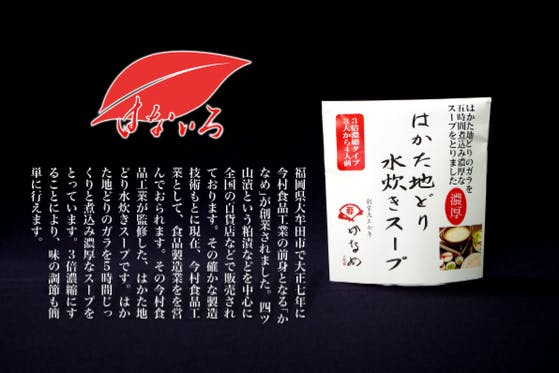 はないろ
福岡県大牟田市で大正七年に
今村食品工業の前身となる「か
なめ」が創業されました。四ツ
山漬という粕漬などを中心に
全国の百貨店などで販売され
ております。その確かな製造
技術もと現在、今村食品工
業として、食品製造業をを営
んでおられます。その今村食
品工業が監修した、はかた地
どり水炊きスープです。はか
た地どりのガラを5時間じっ
くりと煮込み濃厚なスープを
とっています。3倍濃縮にす
ることにより、味の調節も簡
単に行えます。
はかた地どりのガラを
五時間煮込み濃厚な
スープをとりました
濃厚
はかた地どり
水炊きスープ
3倍濃縮タイプ
3人から4人前
創業大正七年
かなめ